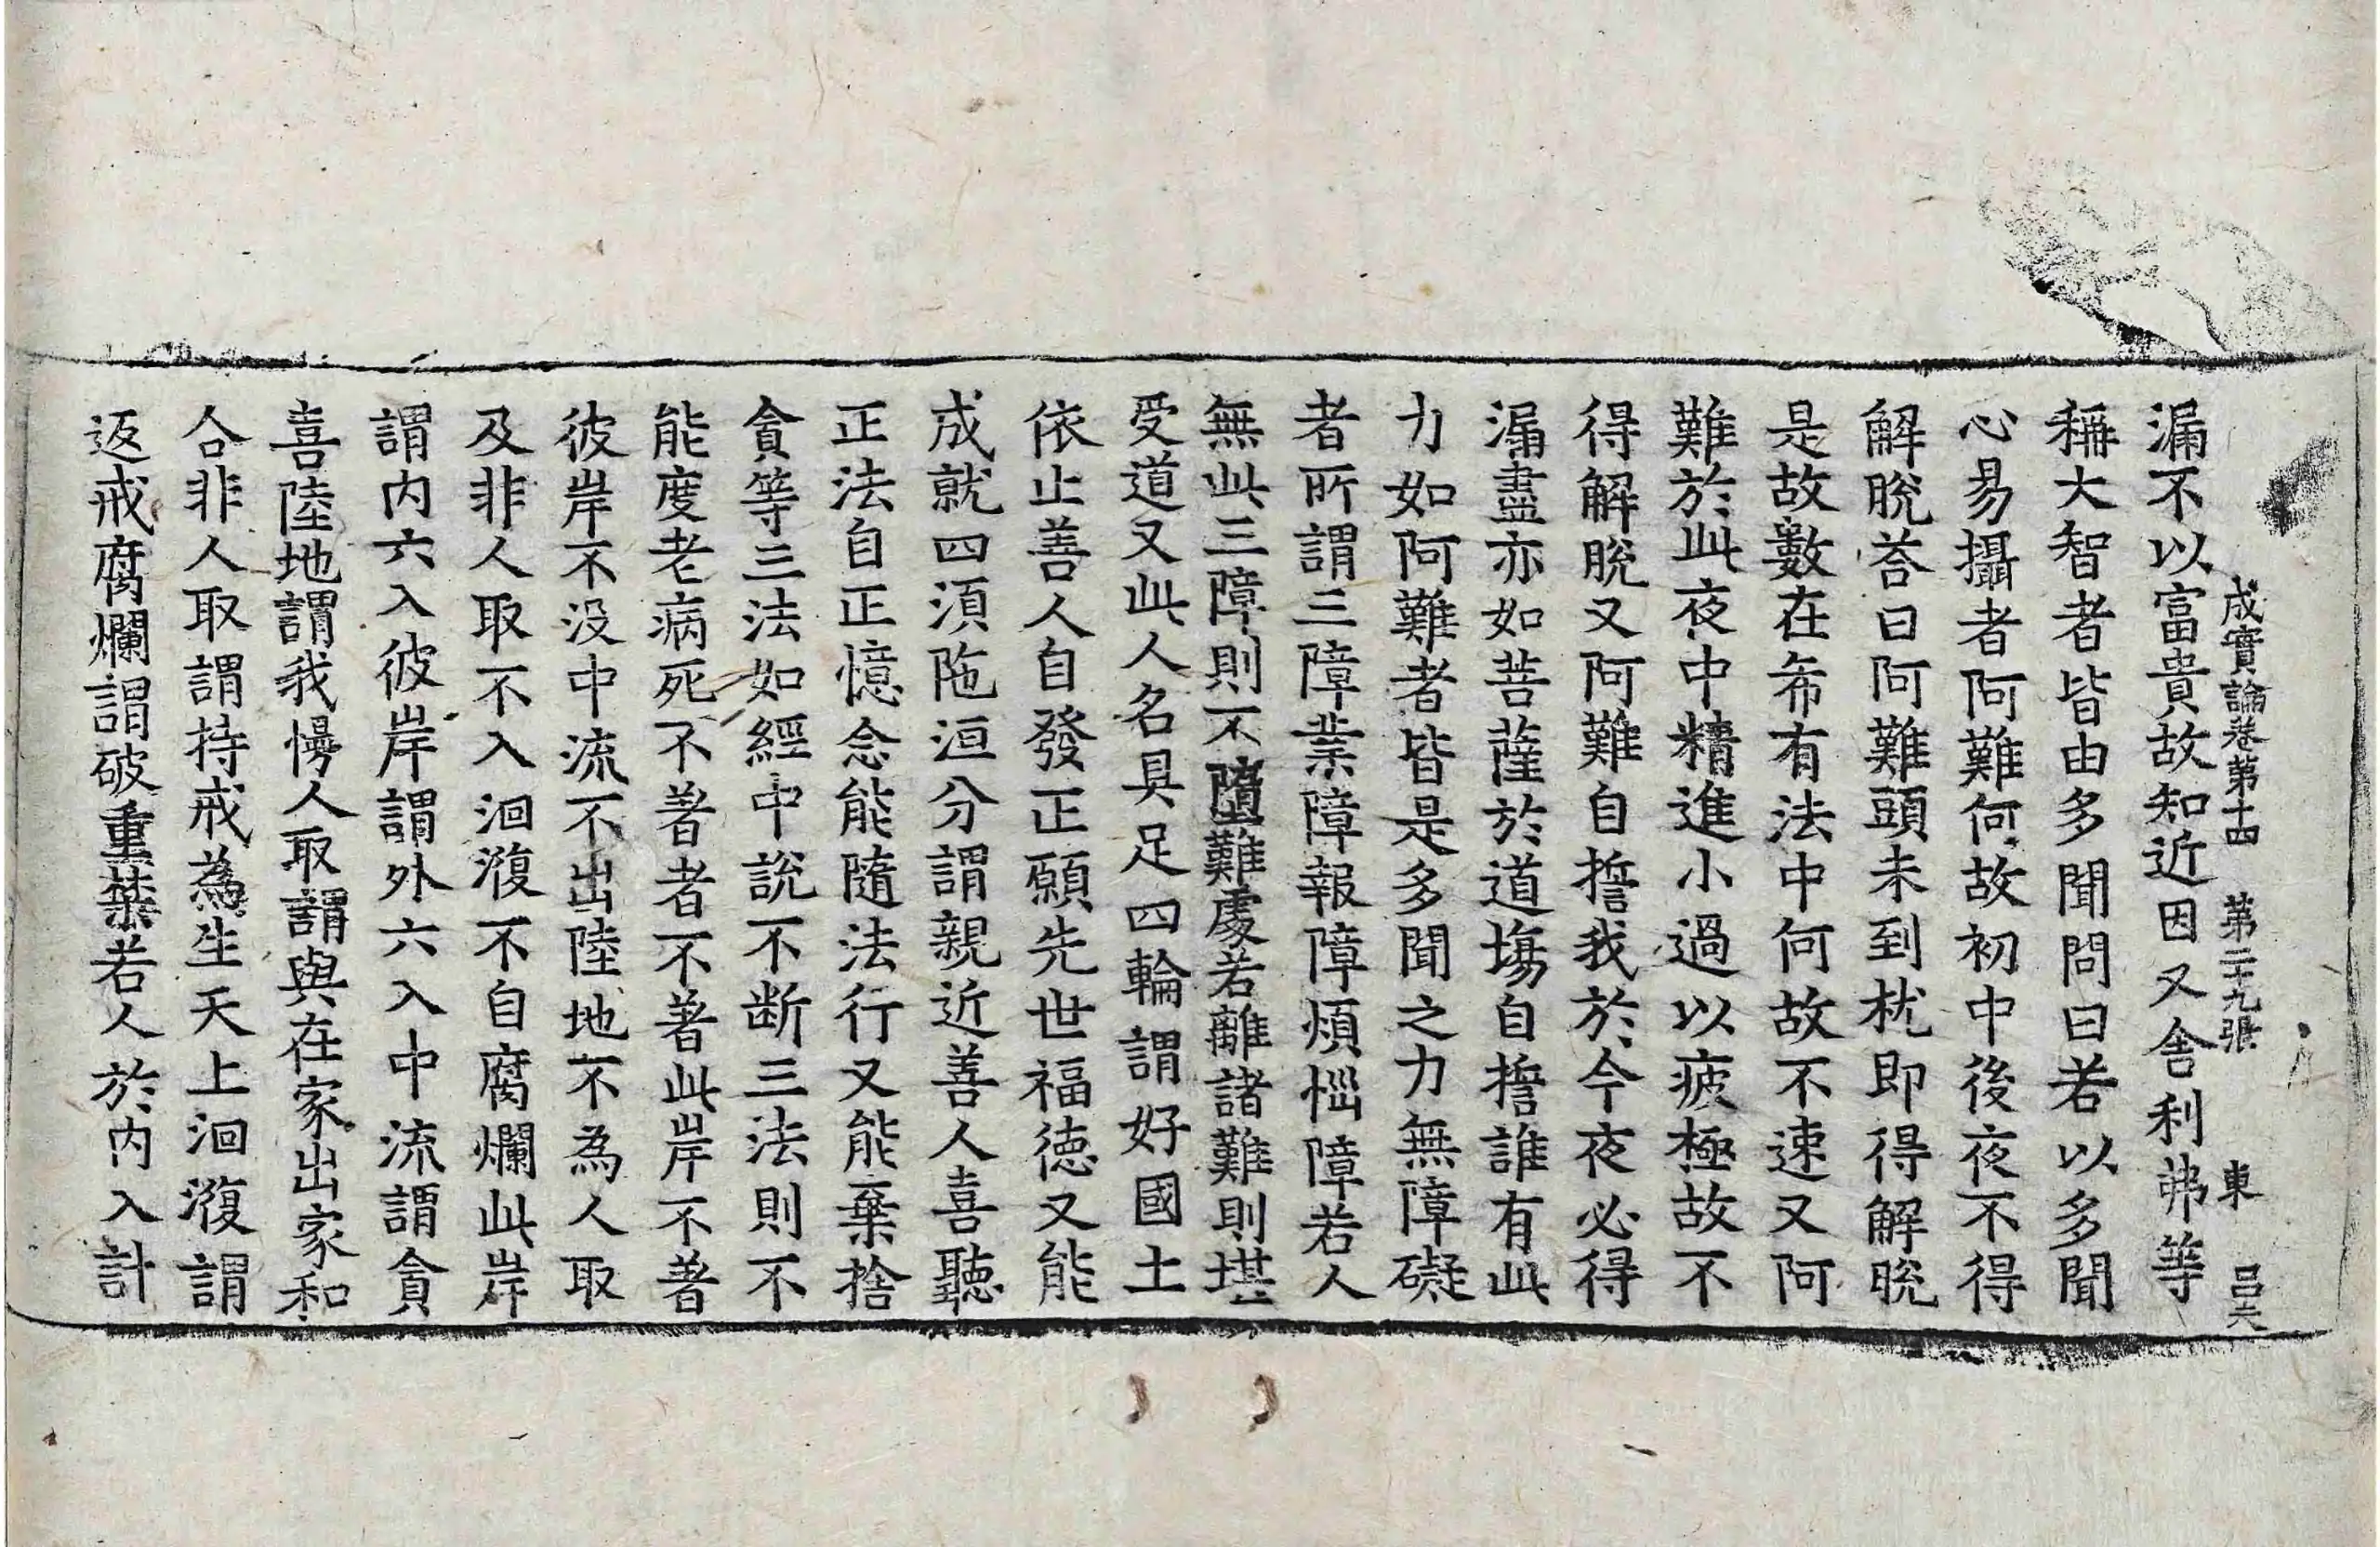 成實論卷第十四　第二十九張　東　呂夫
漏不以富貴故知近因又舍利弗等
稱大智者皆由多聞問曰若以多聞
心易攝者阿難何故初中後夜不得
解脫荅曰阿難頭未到枕即得解脫
是故數在希有法中何故不速又阿
難於此夜中精進小過以疲極故不
得解脫又阿難自誓我於今夜必得
漏盡亦如菩薩於道場自誓誰有此
力如阿難者皆是多聞之力無障礙
者所謂三障業障報障煩惱障若人
無此三障則不墮難處若離諸難則堪
受道又此人名具足四輪謂好國土
依止善人自發正願先世福德又能
成就四須陁洹分謂親近善人喜聽
正法自正憶念能隨法行又能棄捨
貪等三法如經中說不断三法則不
能度老病死不著者不著此岸不著
彼岸不没中流不出陸地不為人取
及非人取不入洄澓不自腐爛此岸
謂内六入彼岸謂外六入中流謂貪
喜陸地謂我慢人取謂與在家出家和
合非人取謂持戒為生天上洄澓謂
返戒腐爛謂破重禁若人於内入計